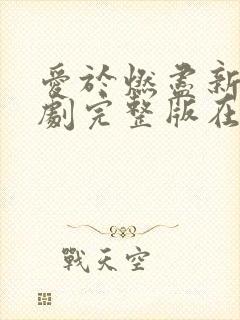 愛於燃盡新
劇完整版在
戰天空